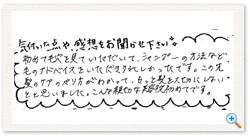 気付いた点や、感想をお聞かせ下さい。
初めて毛穴を見ていただいて、シャンプーの方法など、
色々アドバイスをいただきうれしかったです。この先、
髪のケアのやり方がわかって、もっと髪を大切にしない
とと思いました。こんな親切な美容院初めてです。